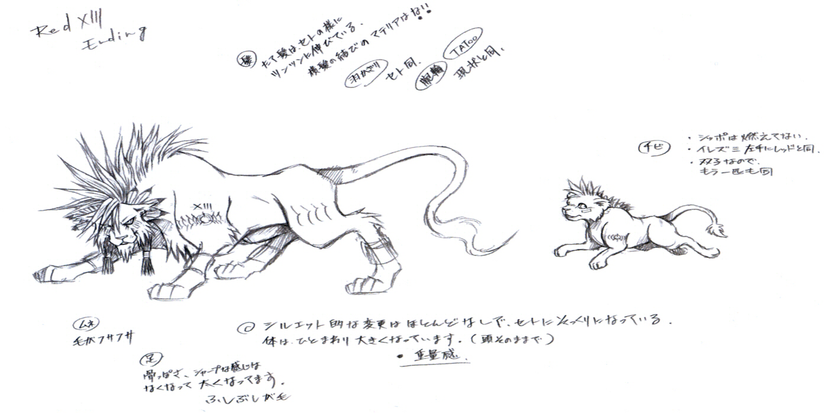 Red XIII
Ending
髪 たて髪は、セトの様に
ツンツンに伸びている。
横髪の結びのマテリアはなし!!
羽かざり セト同
腕輪 TATOO 現状と同、
XIII
チビ
・シッポは燃えてない。
・イレズミ 左手にレッドと同。
・双子なので、
もう一匹も同
ムネ
毛がフサフサ
足
骨っぽさ、シャープな感じは
なくなって太くなってます。
ふしぶしが毛
○ シルエット的な変更はほとんどなしで、セトにそっくりになっている。
体は、ひとまわり大きくなっています。(頭そのままで)
・重量感.